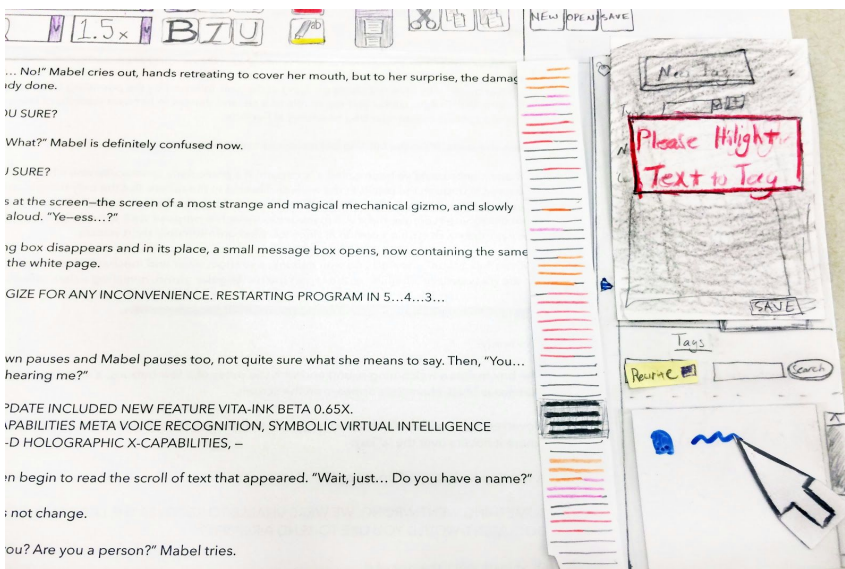 1.5x
B I U
ab
NEW OPEN SAVE
... No!” Mabel cries out, hands retreating to cover her mouth, but to her surprise, the damag
dy done.
OU SURE?
What?” Mabel is definitely confused now.
U SURE?
s at the screen—the screen of a most strange and magical mechanical gizmo, and slowly
aloud. “Ye—ess...?”
ng box disappears and in its place, a small message box opens, now containing the same
the white page.
GIZE FOR ANY INCONVENIENCE. RESTARTING PROGRAM IN 5...4...3...
wn pauses and Mabel pauses too, not quite sure what she means to say. Then, “You...
hearing me?”
PDATE INCLUDED NEW FEATURE VITA-INK BETA 0.65X.
APABILITIES META VOICE RECOGNITION, SYMBOLIC VIRTUAL INTELLIGENCE
-D HOLOGRAPHIC X-CAPABILITIES, —
en begin to read the scroll of text that appeared. “Wait, just... Do you have a name?”
s not change.
ou? Are you a person?” Mabel tries.
New Tag
Please Hilight
Text to Tag
SAVE
Tags
Rewrite
Search